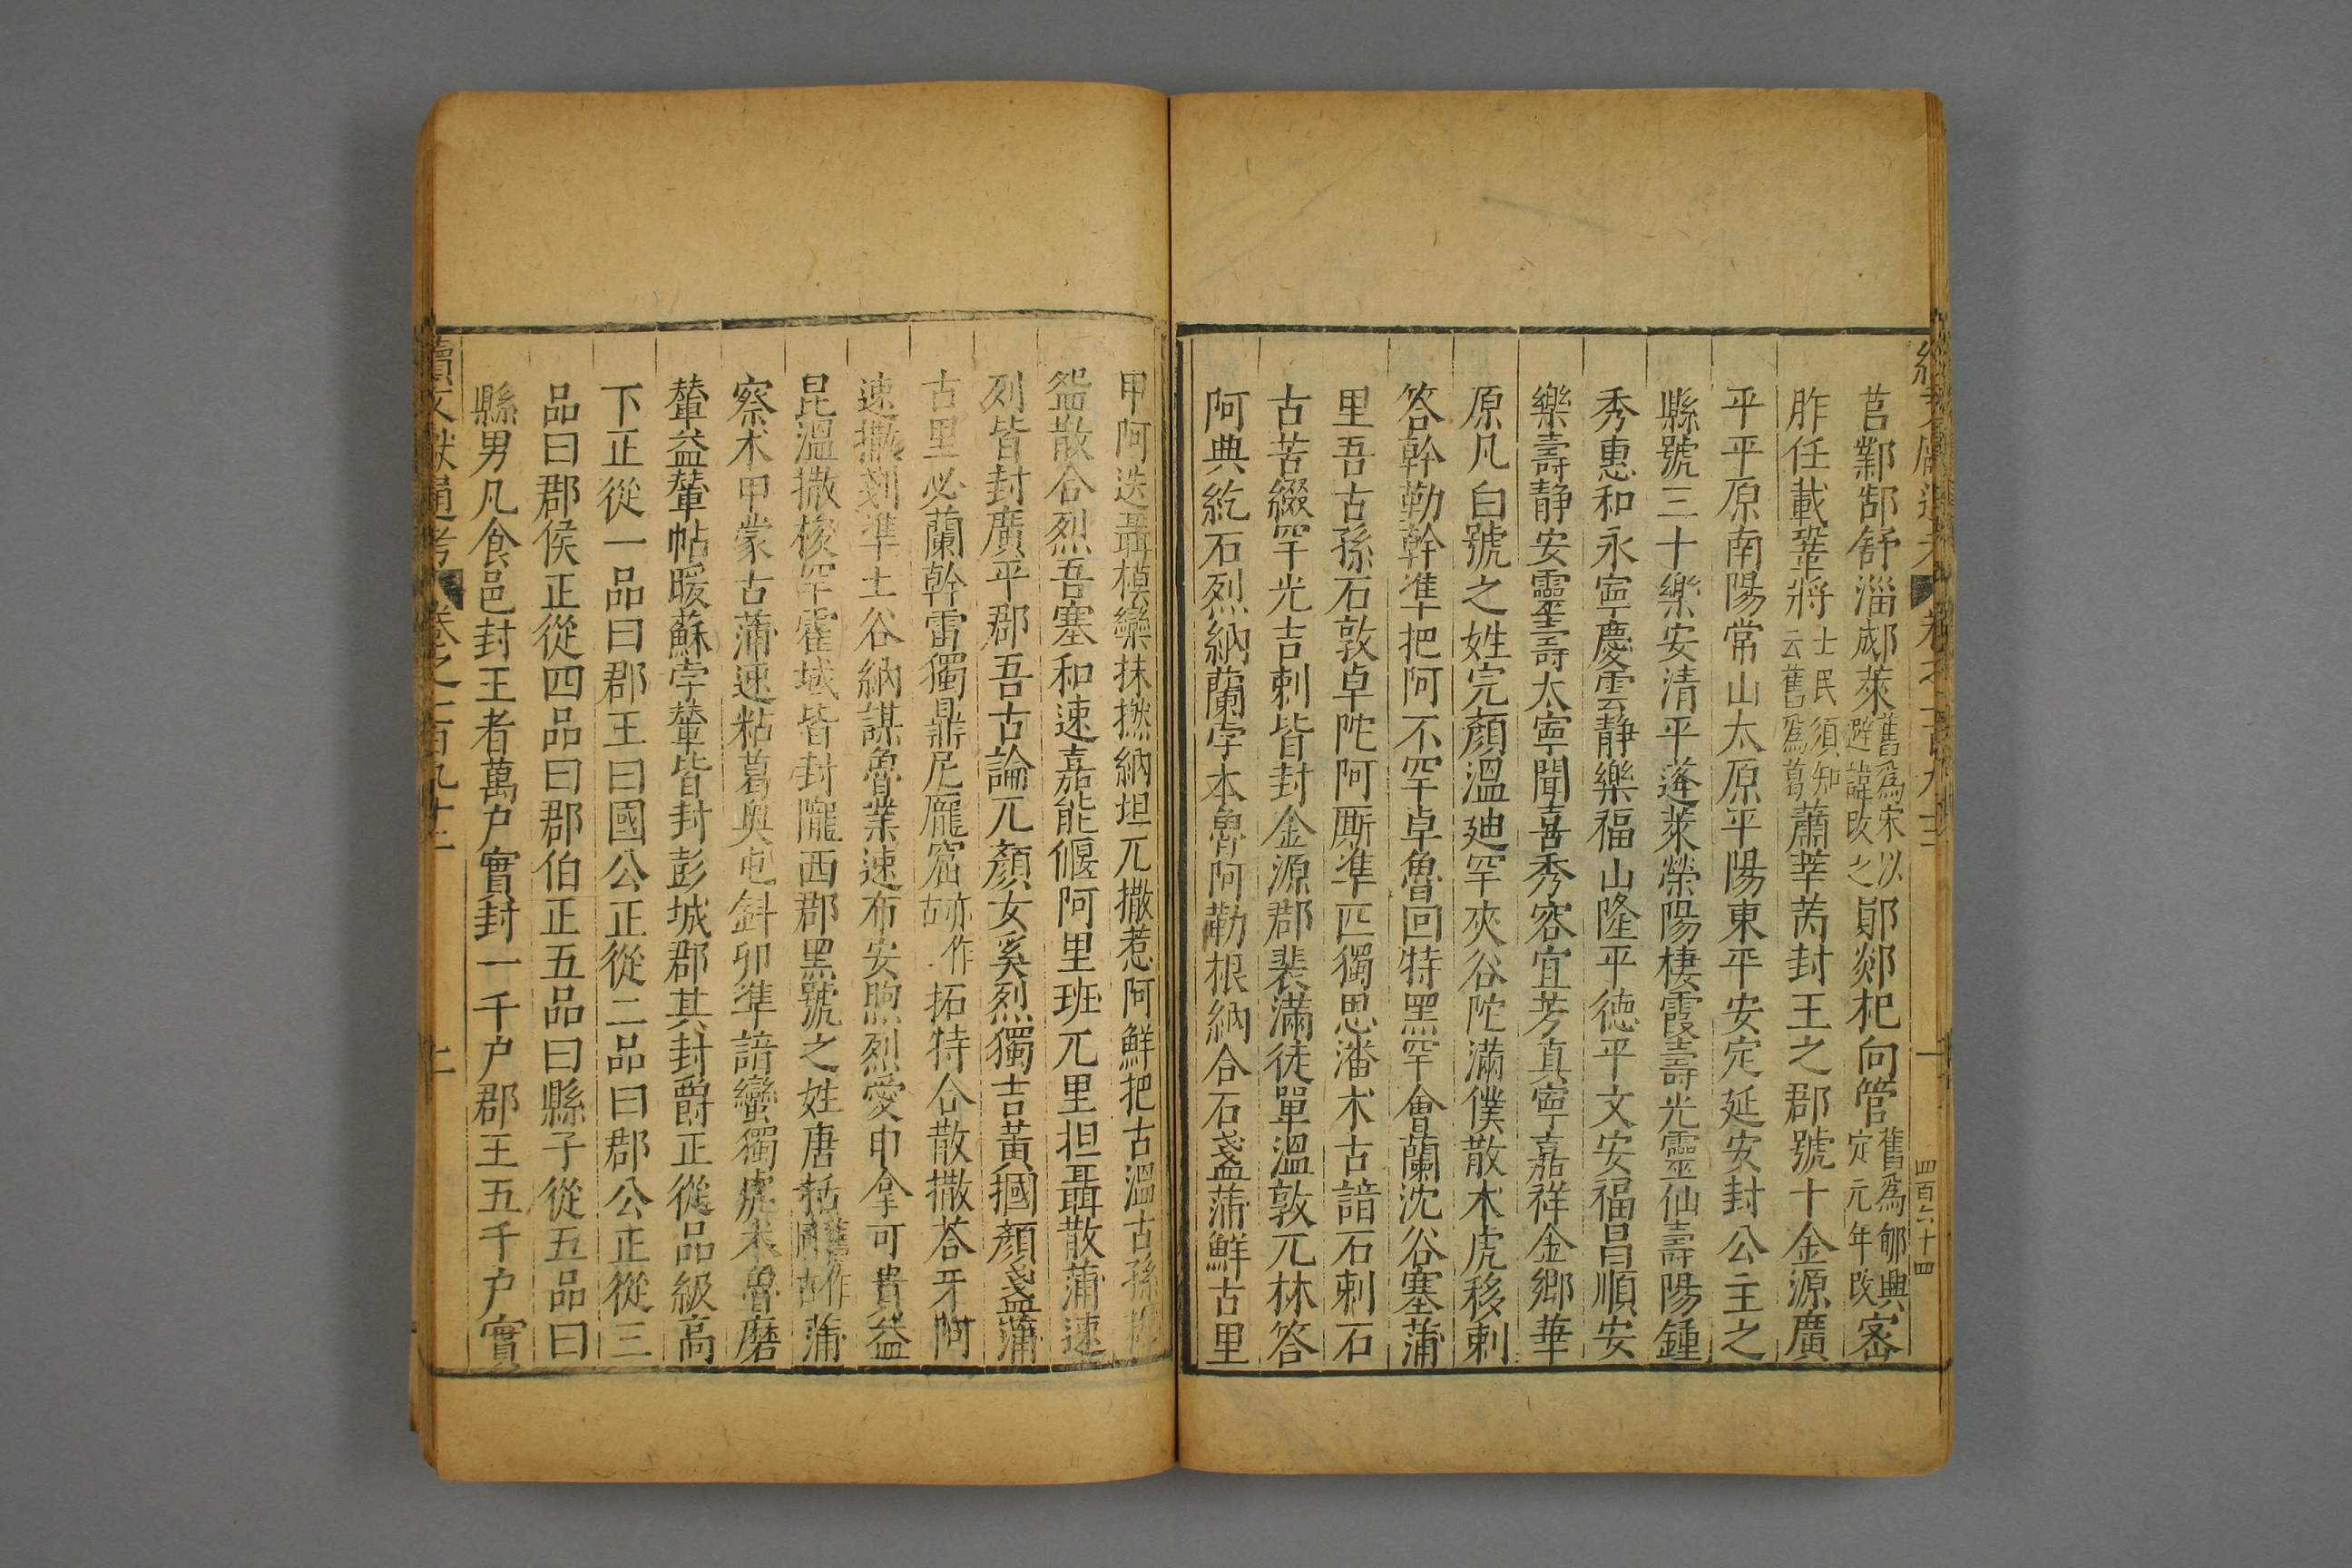 莒鄴郜舒淄郕萊舊爲宋以避諱改之鄖郯杞向管舊爲鄆興定元年改密
胙任載鞏將士民須知云舊爲葛蕭莘芮封王之郡號十金源廣
平平原南陽常山太原平陽東平安定延安封公主之
縣號三十樂安清平蓬萊榮陽棲霞壽光靈仙壽陽鍾
秀惠和永寧慶雲静樂福山隆平德平文安福昌順安
樂壽静安靈壽太寧聞喜秀容宜芳真寧嘉祥金鄉華
原凡白號之姓完顏溫廸罕夾谷陀滿僕散木虎移剌
答斡勒斡準把阿不罕卓魯回特黑罕會蘭沈谷塞蒲
里吾古孫石敦卓陀阿厮準匹獨思潘木古諳石剌石
古苦綴罕光吉剌皆封金源郡裴滿徒單溫敦兀林答
阿典紇石烈納蘭孛本魯阿勒根納合石盞蒲鮮古里
甲阿迭聶模欒抹撚納坦兀撒惹阿鮮把古溫古孫
盌散合烈吾塞和速嘉能偃阿里班兀里担聶散蒲速
列皆封廣平郡吾古論兀顏女奚烈獨吉黃摑顏盞蒲
古里必蘭斡雷獨鼎尼龎窟亦作拓特合散撒荅牙阿
速撒剗準土谷納謀魯業速布安煦烈愛申拿可貴益
昆溫撒梭罕霍域皆封隴西郡黑號之姓唐括舊作蒲
察术甲蒙古蒲速粘葛奧屯斜卯準諳蠻獨虎术魯磨
輦益輦帖暖蘇孛輦皆封彭城郡其封爵正從品級高
下正從一品曰郡王曰國公正從二品曰郡公正從三
品曰郡侯正從四品曰郡伯正五品曰縣子從五品曰
縣男凡食邑封王者萬户實封一千户郡王五千户實
續文獻通考 卷之一百九十二 二
四百六十四